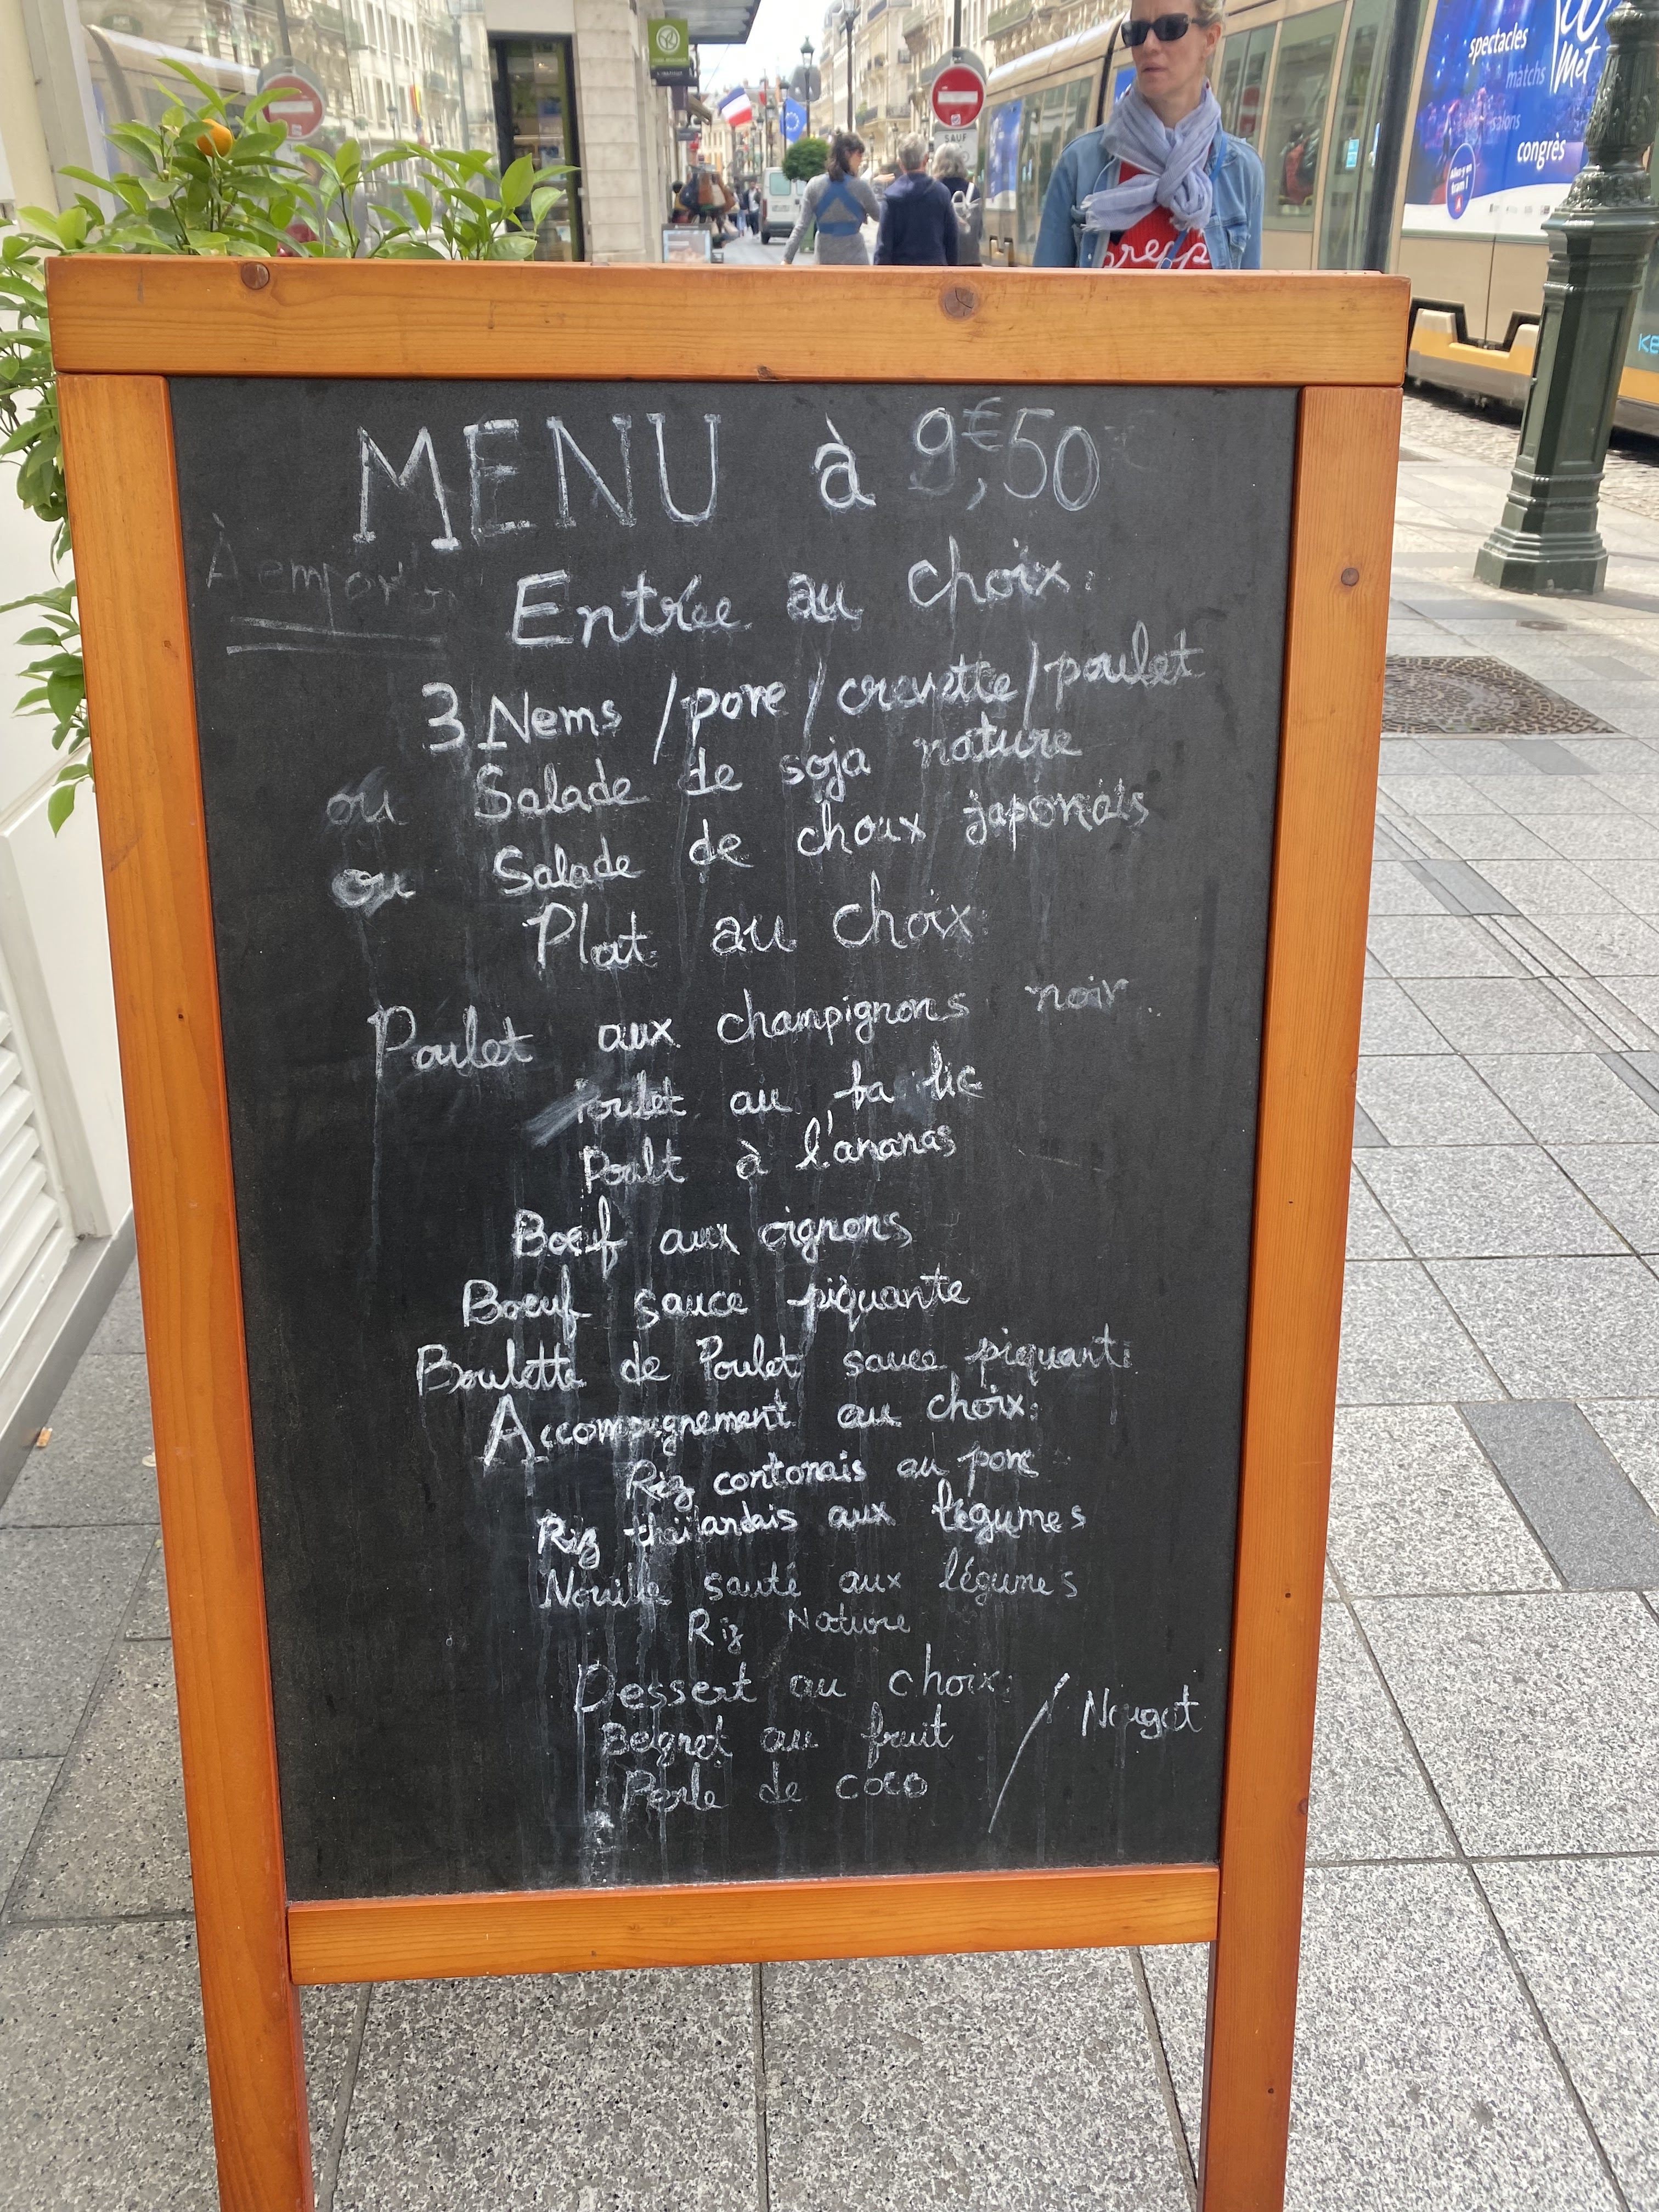 spectacles
matchs
salons
congrès
Met
SAUF
MENU à 9€,50
À emporter
Entrée au choix:
3 Nems / porc / crevette / poulet
ou Salade de soja nature
ou Salade de choux japonais
Plat au choix:
Poulet aux champignons noir.
Poulet au ba lic
Poult à l'ananas
Bœuf aux oignons
Boeuf sauce piquante
Boulette de Poulet sauce piquante
Accompagnement au choix:
Riz contonais au porc
Riz thaïlandais aux légumes
Nouille sauté aux légumes
Riz Nature
Dessert au choix: / Nougat
Beignet au fruit
Perle de coco